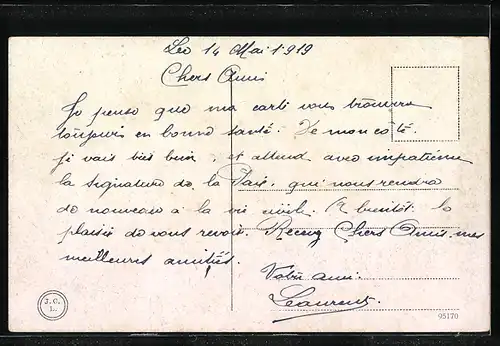 Leo 14 Mai 1919
Chers Amis
Je pense que ma carte vous trouvera
toujours en bonne santé. De mon côté
je vais très bien, et attend avec impatience
la signature de la Paix, qui nous rendra
de nouveau à la vie civile. A bientôt le
plaisir de vous revoir. Recevez Chers Amis mes
meilleures amitiés.
Votre ami.
Laurent
J.C.
L.
95170